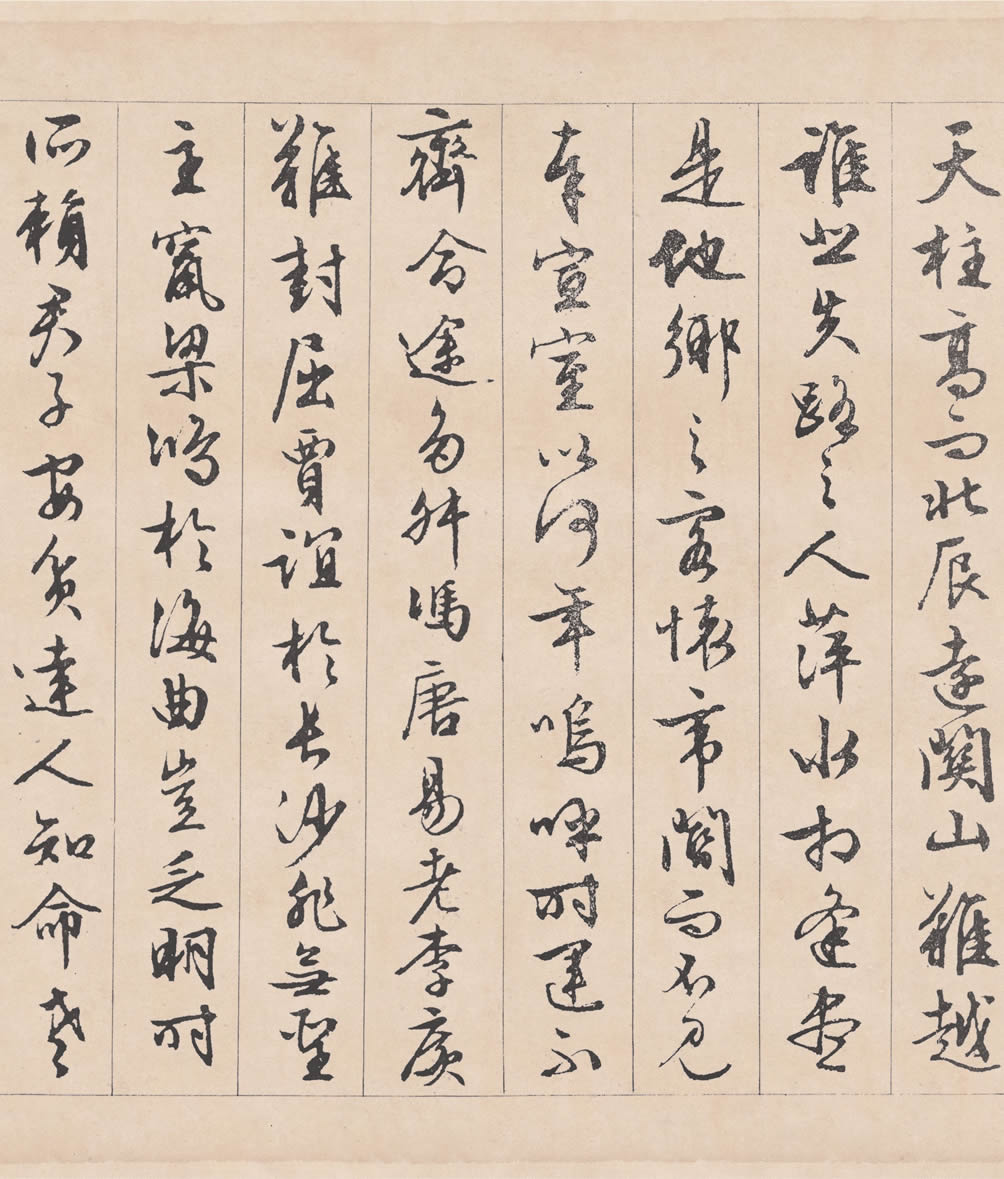 天柱高而北辰遠關山難越
誰悲失路之人萍水相逢盡
是他鄉之客懷帝閽而不見
奉宣室以何年嗚呼時運不
齊命途多舛馮唐易老李廣
難封屈賈誼於長沙非無聖
主竄梁鴻於海曲豈乏明時
所賴君子安貧達人知命老